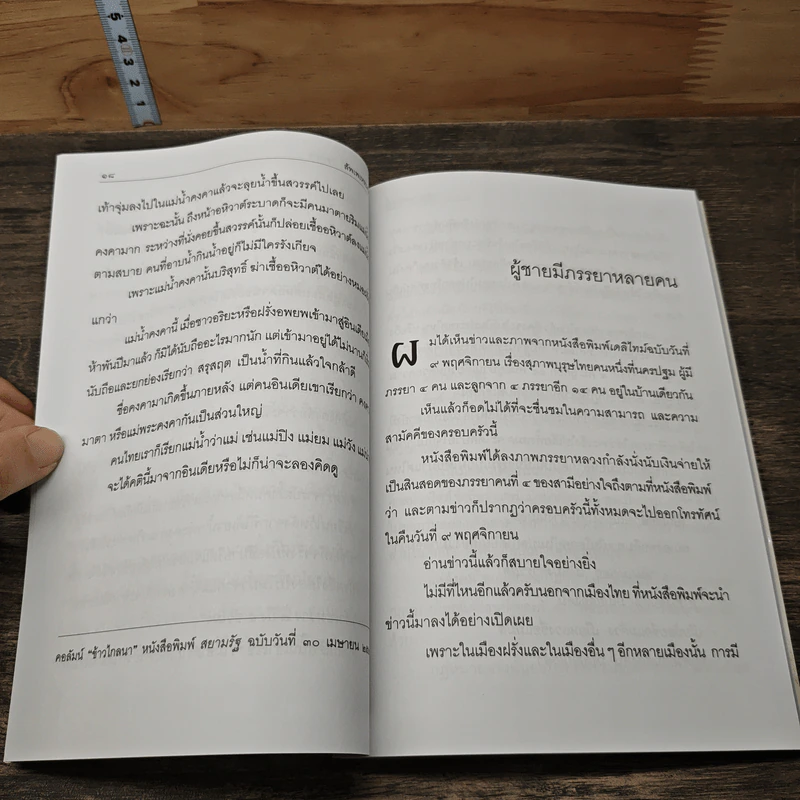 5 4 3 2 1
๑๘
เท้าจุ่มลงไปในแม่น้ำคงคาแล้วจะลุยน้ำขึ้นสวรรค์ไปเลย
เพราะฉะนั้น ถึงหน้าอหิวาต์ระบาดก็จะมีคนมาตายริมแม่น้ำ
คงคามาก ระหว่างที่นั่งคอยขึ้นสวรรค์นั้นก็ปล่อยเชื้ออหิวาต์ลงแม่น้ำ
ตามสบาย คนที่อาบน้ำกินน้ำอยู่ก็ไม่มีใครรังเกียจ
เพราะแม่น้ำคงคานั้นบริสุทธิ์ ฆ่าเชื้ออหิวาต์ได้อย่าง
แกว่า
แม่น้ำคงคานี้ เมื่อชาวอริยะหรือฝรั่งอพยพเข้ามาสู่อินเดีย
ห้าพันปีมาแล้ว ก็มิได้นับถืออะไรมากนัก แต่เข้ามาอยู่ได้ไม่นาน
นับถือและยกย่องเรียกว่า สรฺสฤต เป็นน้ำที่กินแล้วใจกล้าดี
ชื่อคงคามาเกิดขึ้นภายหลัง แต่คนอินเดียเขาเรียกว่า
มาตา หรือแม่พระคงคากันเป็นส่วนใหญ่
คนไทยเราก็เรียกแม่น้ำว่าแม่ เช่นแม่ปิง แม่ยม แม่วัง
จะได้คตินี้มาจากอินเดียหรือไม่ก็น่าจะลองคิดดู
คอลัมน์ “ข้าวไกลนา” หนังสือพิมพ์ สยามรัฐ ฉบับวันที่ ๓๐ เมษายน
ผู้ชายมีภรรยาหลายคน
ผมได้เห็นข่าวและภาพจากหนังสือพิมพ์เดลิไทม์ฉบับวันที่
๙ พฤศจิกายน เรื่องสุภาพบุรุษไทยคนหนึ่งที่นครปฐม ผู้มี
ภรรยา ๔ คน และลูกจาก ๔ ภรรยาอีก ๑๔ คน อยู่ในบ้านเดียวกัน
เห็นแล้วก็อดไม่ได้ที่จะชื่นชมในความสามารถ และความ
สามัคคีของครอบครัวนี้
หนังสือพิมพ์ได้ลงภาพภรรยาหลวงกำลังนั่งนับเงินจ่ายให้
เป็นสินสอดของภรรยาคนที่ ๔ ของสามีอย่างใจถึงตามที่หนังสือพิมพ์
ว่า และตามข่าวก็ปรากฏว่าครอบครัวนี้ทั้งหมดจะไปออกโทรทัศน์
ในคืนวันที่ ๙ พฤศจิกายน
อ่านข่าวนี้แล้วก็สบายใจอย่างยิ่ง
ไม่มีที่ไหนอีกแล้วครับนอกจากเมืองไทย ที่หนังสือพิมพ์จะนำ
ข่าวนี้มาลงได้อย่างเปิดเผย
เพราะในเมืองฝรั่งและในเมืองอื่น ๆ อีกหลายเมืองนั้น การมี